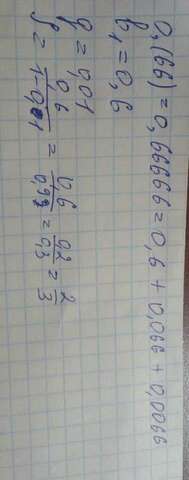 0,(66) = 0,66666 = 0,6 + 0,066 + 0,0066
b₁ = 0,6
q = 0,01
S = 0,6/1-0,01 = 0,6/0,99 = 0,2/0,3 = 2/3